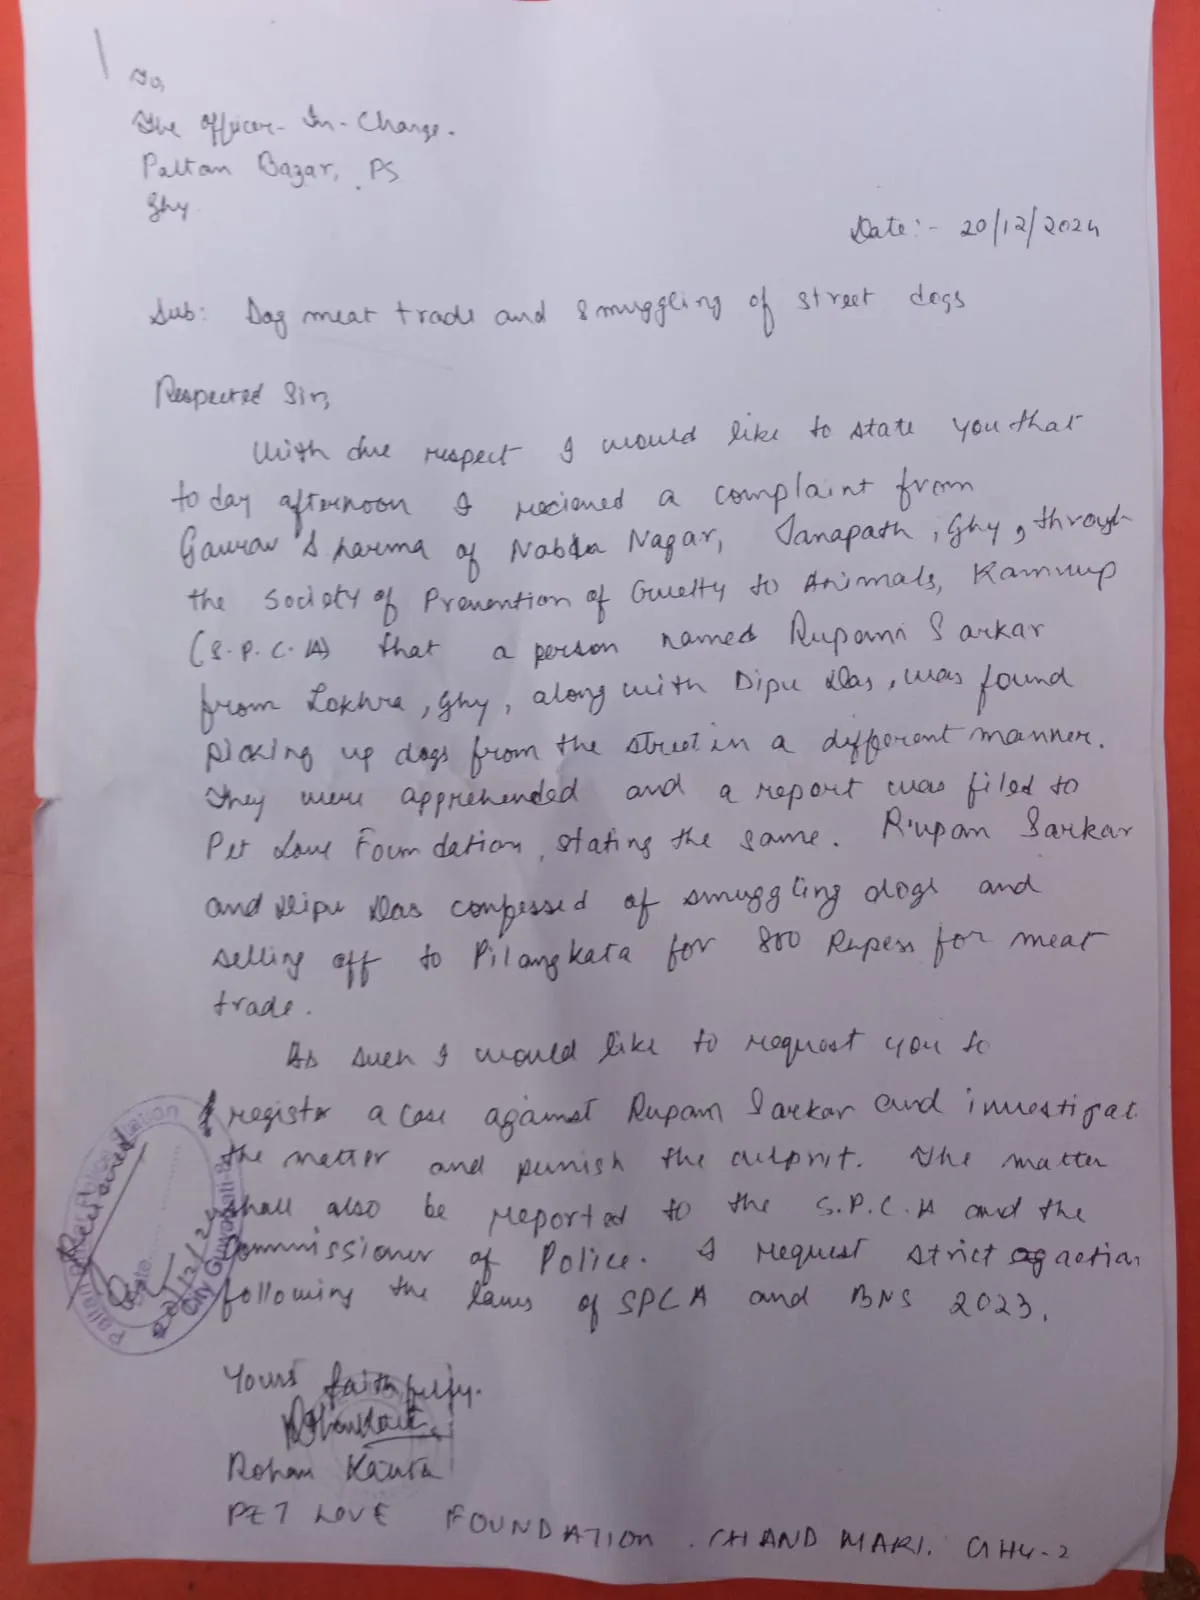 To,
The Officer-In-Charge.
Paltan Bazar, PS
Ghy.
Date:- 20/12/2024
Sub: Dog meat trade and smuggling of street dogs
Respected Sir,
With due respect I would like to state you that
today afternoon I recieved a complaint from
Gaurav Sharma of Nabin Nagar, Janapath, Ghy, through
the Society of Prevention of Cruelty to Animals, Kamrup
(S.P.C.A) that a person named Rupam Sarkar
from Lokhra, Ghy, along with Dipu Das, was found
picking up dogs from the street in a different manner.
They were apprehended and a report was filed to
Pet Love Foundation, stating the same. Rupam Sarkar
and Dipu Das confessed of smuggling dogs and
selling off to Pilangkata for 800 Rupess for meat
trade.
As such I would like to request you to
register a case against Rupam Sarkar and investigat
the matter and punish the culprit. The matter
shall also be reported to the S.P.C.A and the
Commissioner of Police. I request strict action
following the laws of SPCA and BNS 2023.
Received
Date
20/12/24
City Guwahati-8
Yours faithfully.
Rohan Kauta
PET LOVE FOUNDATION. CHANDMARI. GHY-2